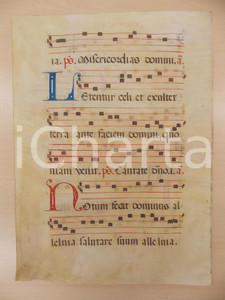 ia. ps. Misericordias domini. a.
Letentur celi et exultet
terra ante faciem domini quo
niam venit. ps. Cantate dño. i. a.
Notum fecit dominus al
leluia salutare suum alleluia.
iCharta